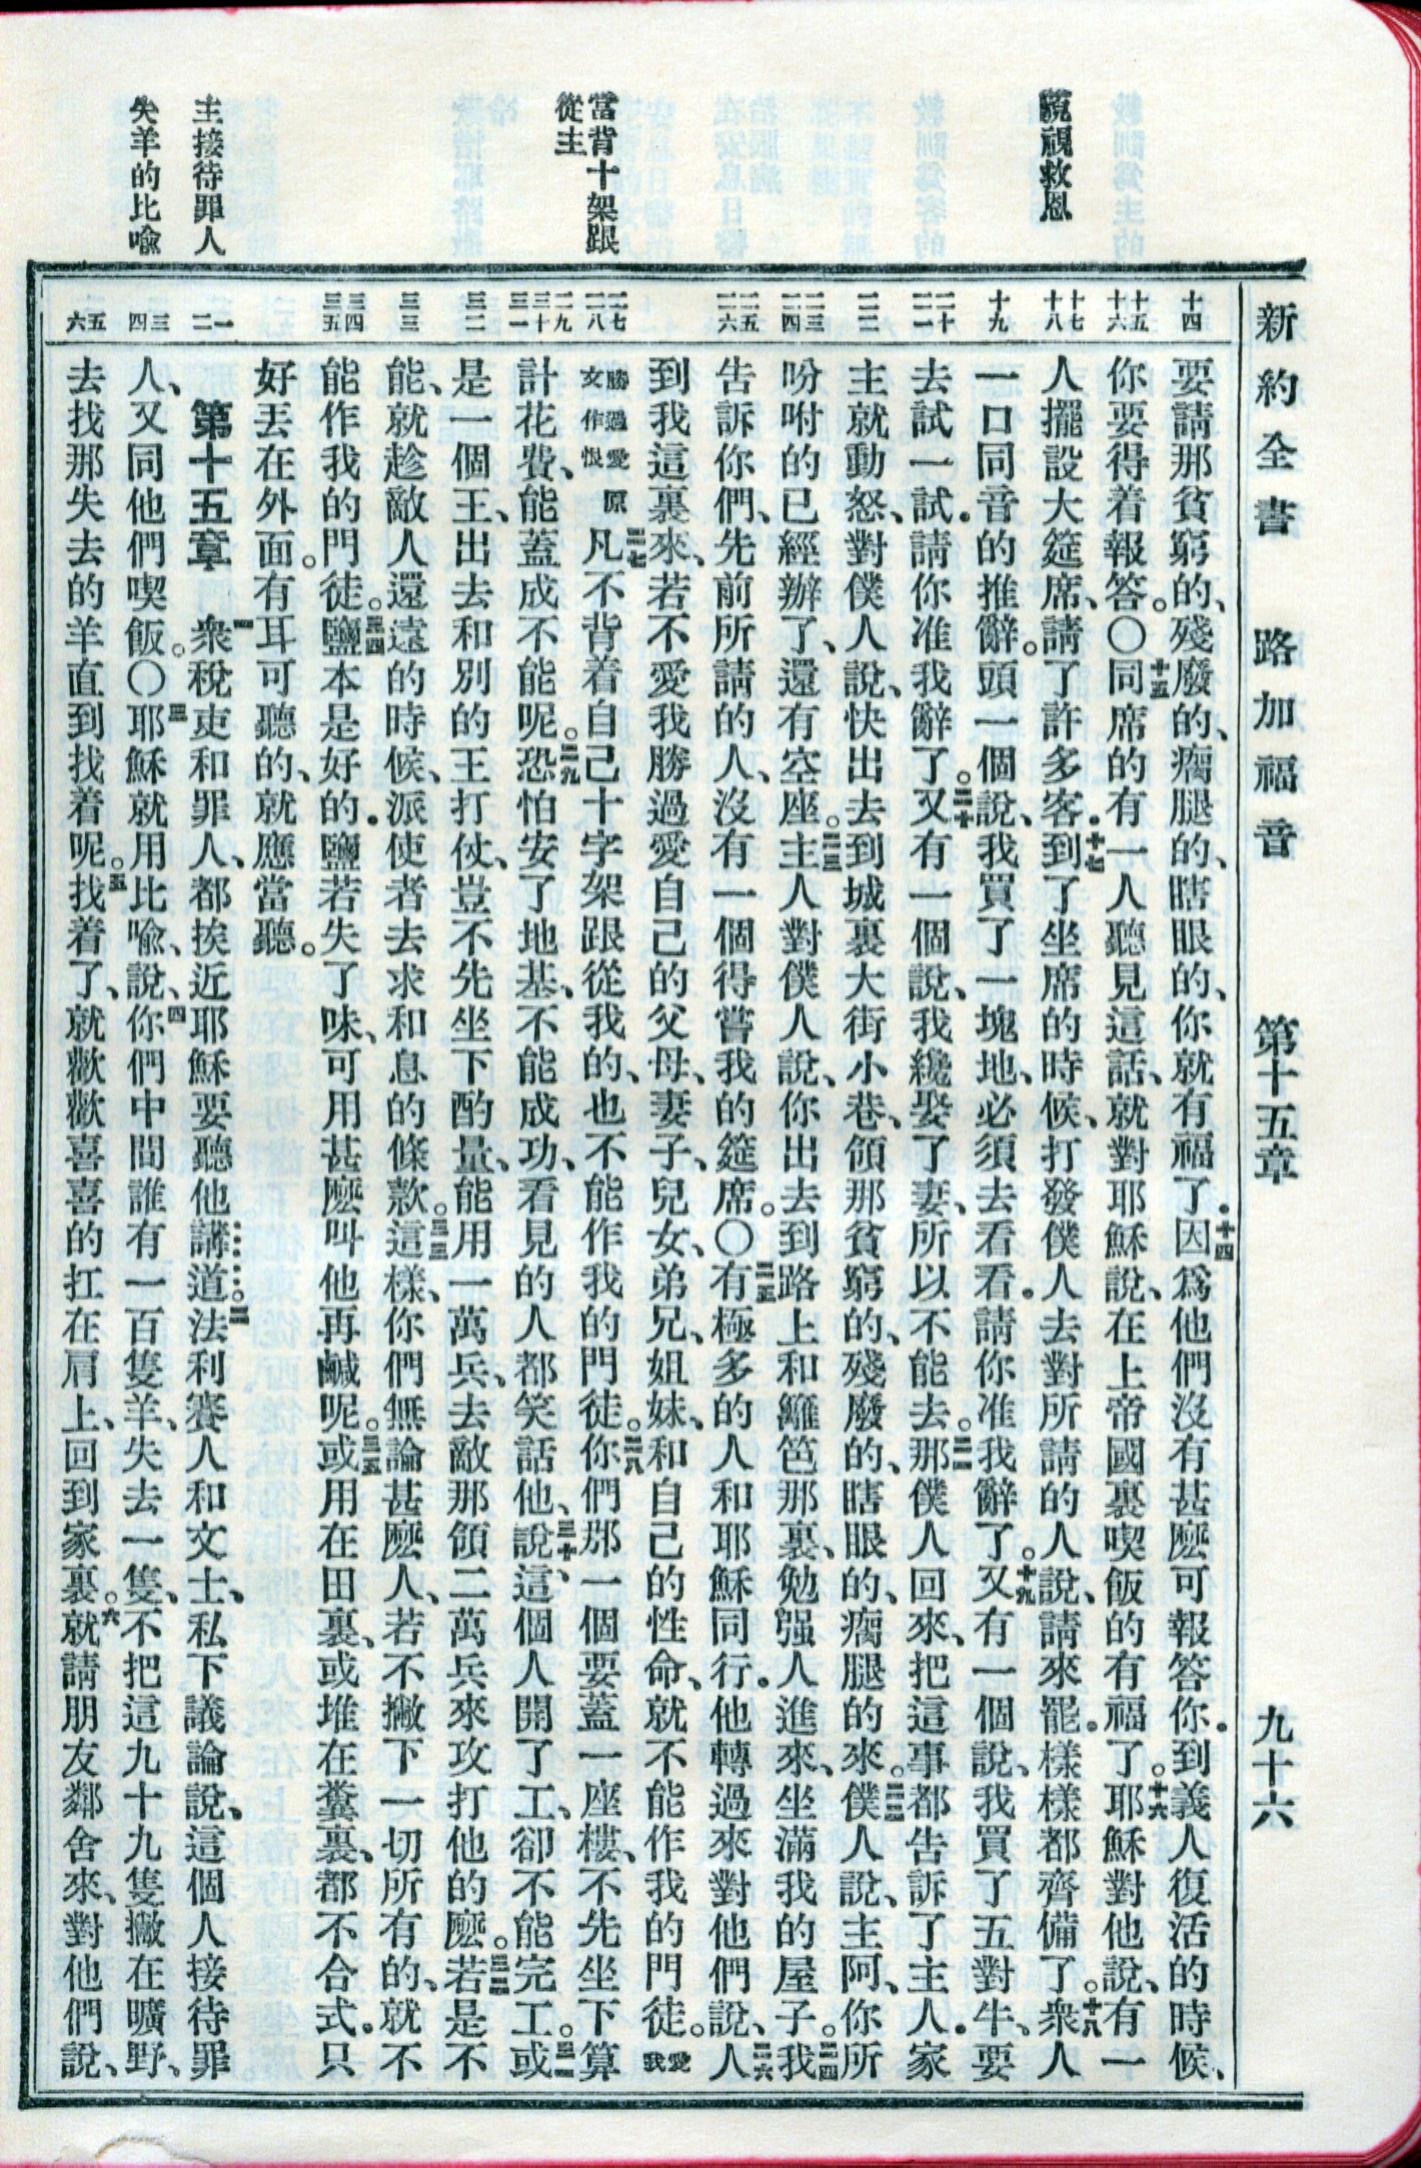 新約全書　路加福音　第十五章　九十六
藐視救恩
當背十架跟
從主
主接待罪人
失羊的比喩
十四
十五
十六
十七
十八
十九
二十
二一
二二
二三
二四
二五
二六
二七
二八
二九
三十
三一
三二
三三
三四
三五
一
二
三
四
五
六
要請那貧窮的、殘廢的、瘸腿的、瞎眼的、你就有福了．十四因爲他們沒有甚麽可報答你．到義人復活的時候、
你要得着報答。〇十五同席的有一人聽見這話、就對耶穌說、在上帝國裏喫飯的有福了。十六耶穌對他說、有一
人擺設大筵席、請了許多客．十七到了坐席的時候、打發僕人去對所請的人說、請來罷．樣樣都齊備了。十八衆人
一口同音的推辭。頭一個說、我買了一塊地、必須去看看．請你准我辭了。十九又有一個說、我買了五對牛、要
去試一試．請你准我辭了。二十又有一個說、我纔娶了妻、所以不能去。二一那僕人回來、把這事都告訴了主人．家
主就動怒、對僕人說、快出去到城裏大街小巷、領那貧窮的、殘廢的、瞎眼的、瘸腿的來。二二僕人說、主阿、你所
吩咐的已經辦了、還有空座。二三主人對僕人說、你出去到路上和籬笆那裏、勉强人進來、坐滿我的屋子。二四我
告訴你們、先前所請的人、沒有一個得嘗我的筵席。〇二五有極多的人和耶穌同行．他轉過來對他們說、二六人
到我這裏來、若不愛我勝過愛自己的父母、妻子、兒女、弟兄、姐妹、和自己的性命、就不能作我的門徒。愛我
勝過愛原文作恨二七凡不背着自己十字架跟從我的、也不能作我的門徒。二八你們那一個要蓋一座樓、不先坐下算
計花費、能蓋成不能呢。二九恐怕安了地基、不能成功、看見的人都笑話他、三十說、這個人開了工、卻不能完工。三一或
是一個王、出去和別的王打仗、豈不先坐下酌量、能用一萬兵、去敵那領二萬兵來攻打他的麽。三二若是不
能、就趁敵人還遠的時候、派使者去求和息的條款。三三這樣、你們無論甚麽人、若不撇下一切所有的、就不
能作我的門徒。三四鹽本是好的．鹽若失了味、可用甚麽叫他再鹹呢。三五或用在田裏、或堆在糞裏、都不合式．只
好丟在外面。有耳可聽的、就應當聽。
第十五章　一衆稅吏和罪人、都挨近耶穌要聽他講道。二法利賽人和文士、私下議論說、這個人接待罪
人、又同他們喫飯。〇三耶穌就用比喩、說、四你們中間誰有一百隻羊、失去一隻、不把這九十九隻撇在曠野、
去找那失去的羊直到找着呢。五找着了、就歡歡喜喜的扛在肩上、回到家裏。六就請朋友鄰舍來、對他們說、